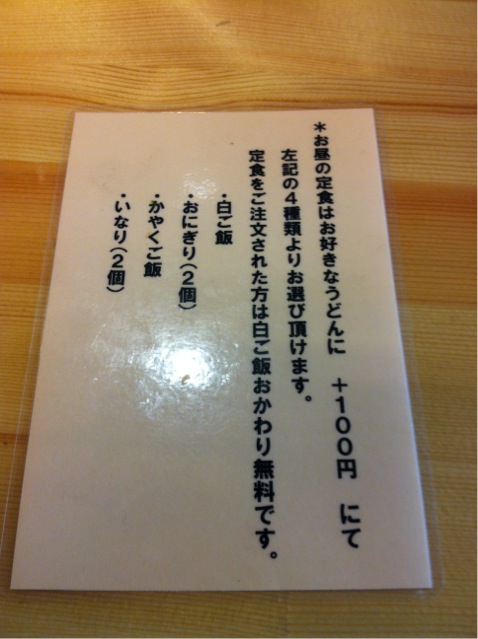 ＊お昼の定食はお好きなうどんに　＋１００円　にて
左記の４種類よりお選び頂けます。
定食をご注文された方は白ご飯おかわり無料です。
・白ご飯
・おにぎり（２個）
・かやくご飯
・いなり（２個）